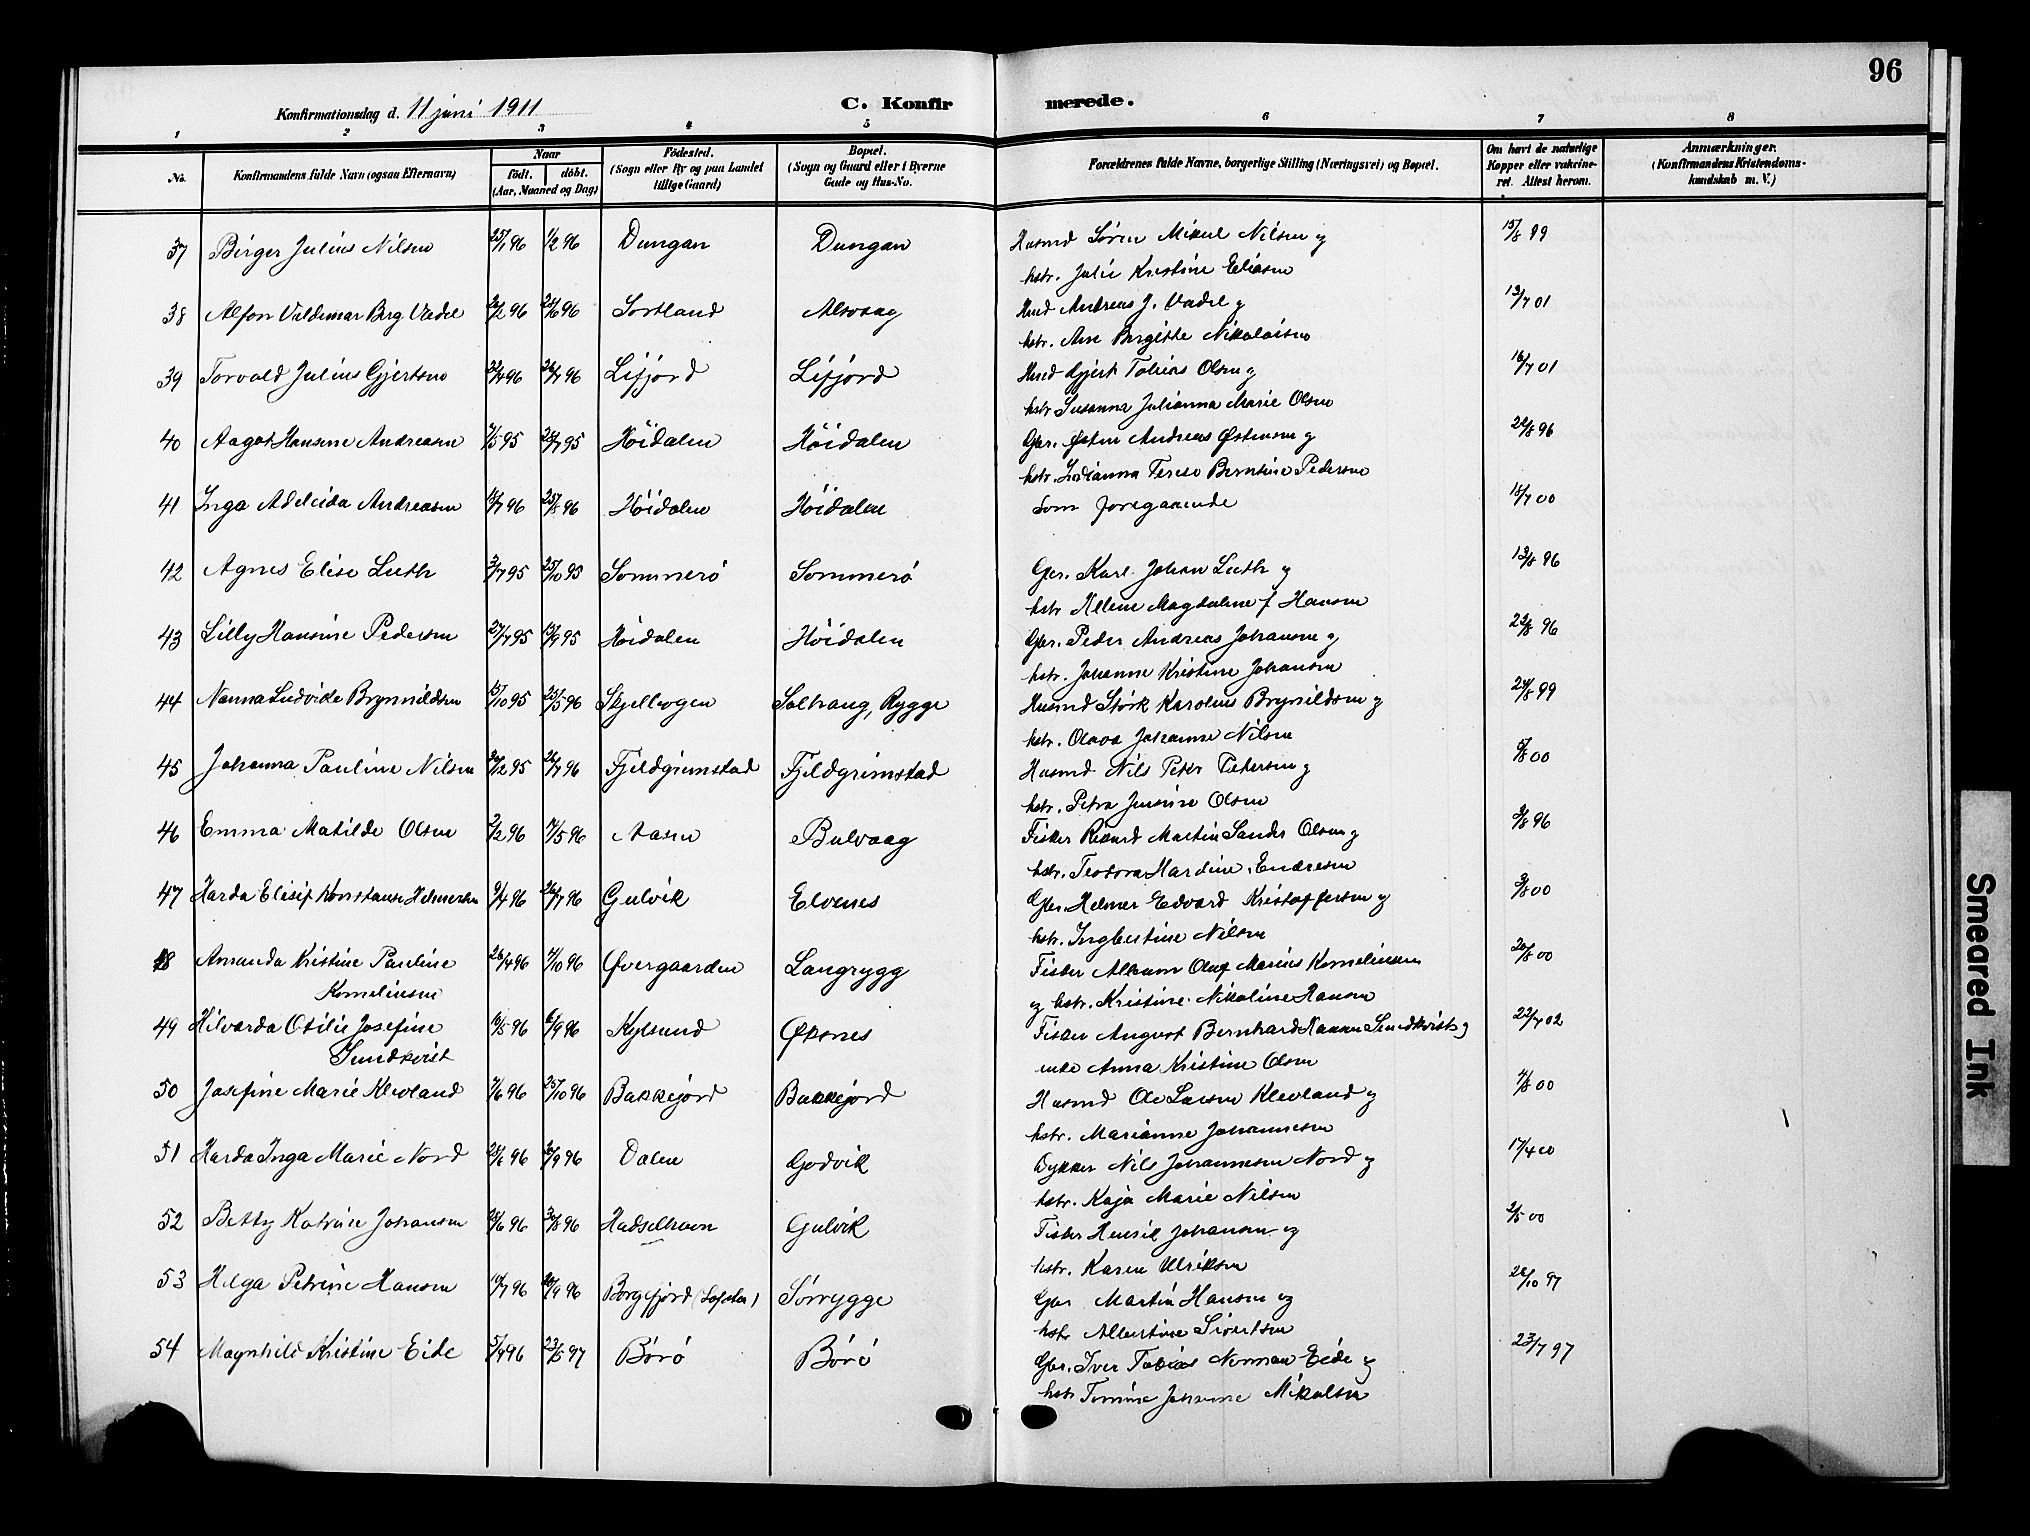 96
Konfirmationsdag d. 11 juni 1911
C. Konfir merede.
1 2 3 4 5 6 7 8
No. Konfirmandens fulde Navn (ogsaa Efternavn) Naar født. døbt. (Aar, Maaned og Dag) Fødested. (Sogn eller By og paa Landet tillige Gaard) Bopæl. (Sogn og Gaard eller i Byerne Gade og Hus-No. Forældrenes fulde Navne, borgerlige Stilling (Næringsvei) og Bopæl. Om havt de naturlige Kopper eller vakcineret. Attest herom. Anmærkninger. (Konfirmandens Kristendomskundskab m. V.)
37 Birger Julius Nilsen 25/1 96 1/2 96 Dungan Dungan Husmd Søren Mikal Nilsen og 15/8 99
hstr. Julie Kristine Eliasen
38 Alfon Valdemar Berg Vadel Sortland Alsvaag Andreas J. Vadel og 13/7 01
hstr. Ane Birgitte Nikolaisen
39 Torvald Julius Gjertsen Lifjord Lifjord Gjert Tobias Olsen og 16/7 01
hstr. Susanna Julianna Marie Olsen
40 Aagot Hansine Andreasen 7/5 95 Høidalen Høidalen Gbr. Østen Andreas Østensen og 22/8 96
hstr. Indianna Terese Berntine Pedersen
41 Inga Adeleida Andreasen 25/8 96 Høidalen Høidalen Som foregaaende 15/7 00
42 Agnes Elise Luth 3/7 95 25/10 95 Sommerø Sommerø Gbr. Karl Johan Luth og 13/8 96
hstr. Helene Magdalene f Hansen
43 Lilly Hansine Pedersen 27/7 95 Høidalen Høidalen Gbr. Peder Andreas Johansen og 22/8 96
hstr. Johanne Kristine Johansen
44 Nanna Ludvike Brynnildsen 15/10 95 25/5 96 Skjellvogen Solhaug, Rygge Husmd Størk Karolius Brynildsen og 24/8 99
hstr. Olava Johanne Nilsen
45 Johanna Pauline Nilsen 26/7 96 Fjeldgrimstad Fjeldgrimstad Husmd Nils Peter Pedersen og
hstr. Petra Jensine Olsen
46 Emma Matilde Olsen 2/2 96 Aasen Bulvaag Fisker Rikard Martin Sander Olsen og
hstr. Teodora Hardine Endresen
47 Harda Elisif Konstanse Helmersen 9/4 96 26/7 96 Gulvik Elvenes Gbr. Helmer Edvard Kristoffersen og 3/8 00
hstr. Ingbertine Nilsen
48 Amanda Kristine Pauline 26/4 96 Øvergaarden Langrygg Fisker Olaf Marius Kornelinsen 20/8 00
Kornelinsen og hstr. Kristine Nikoline Hansen
49 Hilvarda Otilie Josefine 16/5 96 6/9 96 Kylsund Øksnes Fisker August Bernhard Hansen Sundkvist og 22/7 02
Sundkvist enke Anna Kristine Olsen
50 Josefine Marie Klevland 7/6 96 25/10 96 Bakkejord Bakkejord Husmd Ole Larsen Klevland og
hstr. Marianne Johannesen
51 Harda Inga Marie Nord Dalen Godvik Dykker Nils Johannesen Nord og 17/4 00
hstr. Kaja Marie Nilsen
52 Betty Katrine Johansen 30/8 96 Hadselhavn Gulvik Fisker Hensil Johansen og 2/5 00
hstr. Karen Ulriksen
53 Helga Petrine Hansen Borgefjord (Lofoten) Sørrygge Gbr Martin Hansen og
hstr Albertine Sivertsen
54 Magnhild Kristine Eide 5/4 96 23/5 97 Børø Børø Gbr. Iver Tobias Norman Eide og 23/7 97
hstr Tomine Johanne Mikalsen
Smeared Ink